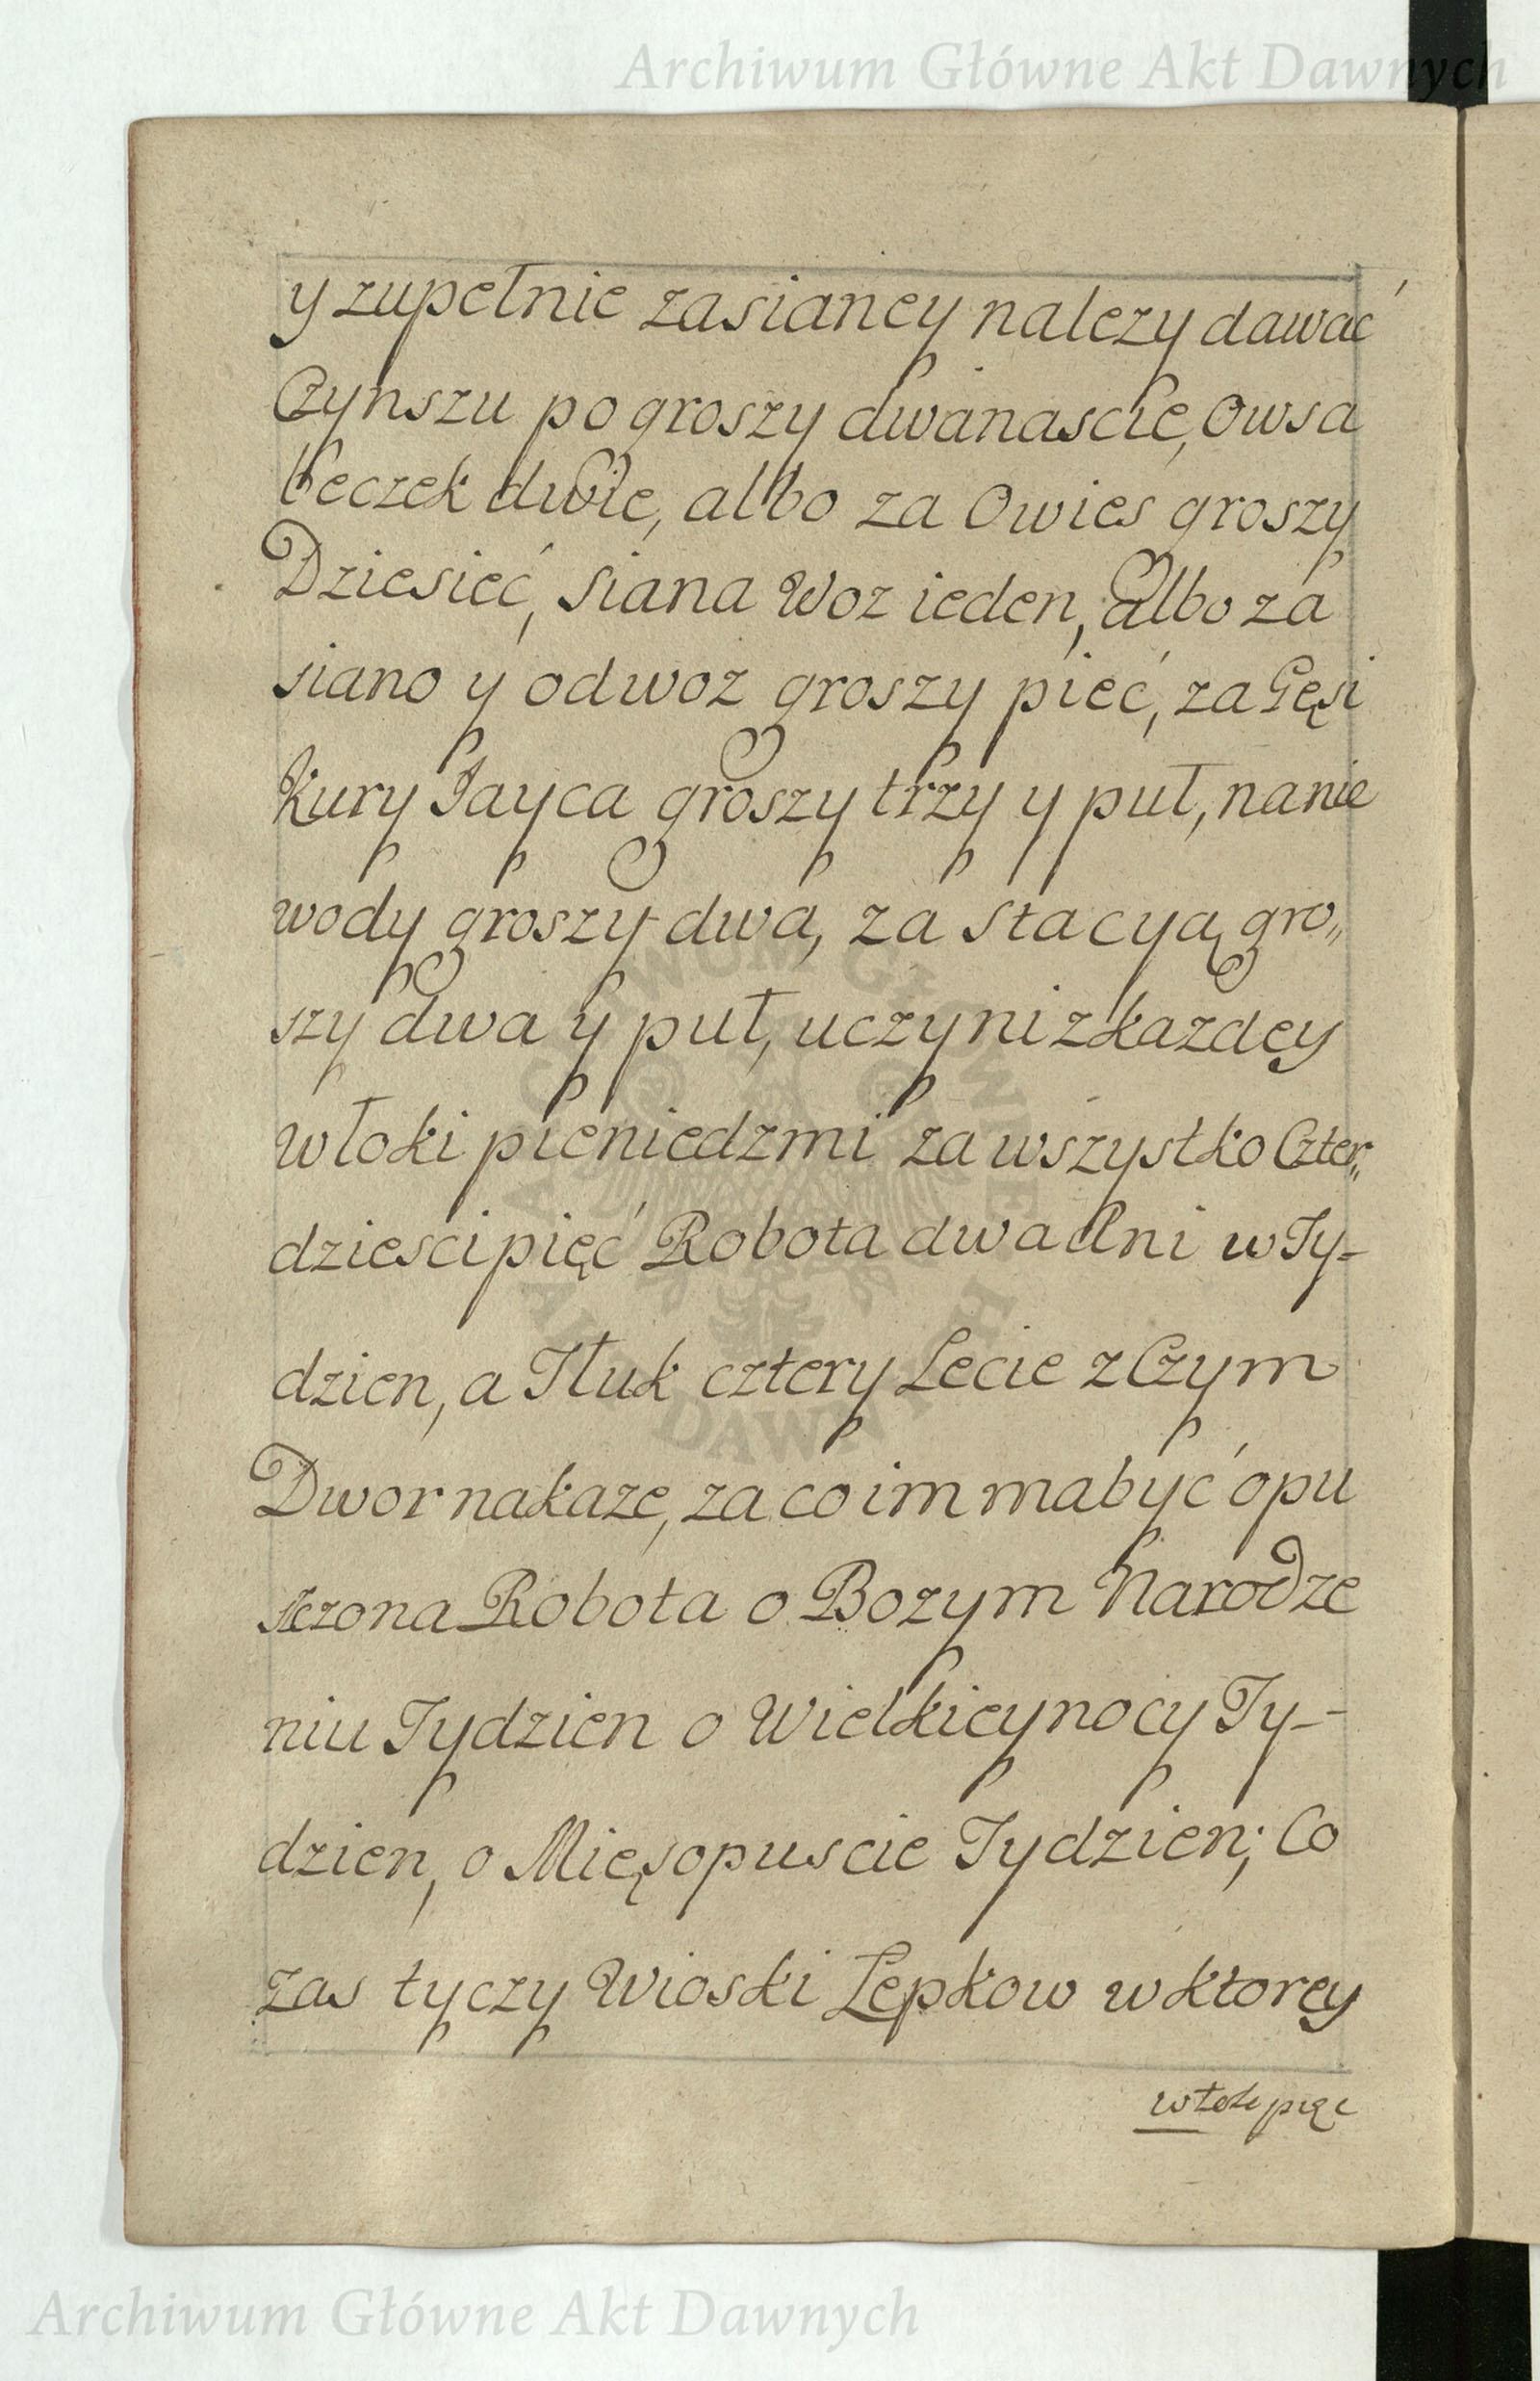 Archiwum Główne Akt Dawnych
y zupełnie zasianey nalezy dawać
Czynszu po groszy dwanascie, Owsa
beczek dwie, albo za Owies groszy
Dziesieć, siana Woz ieden, albo za
siano y odwoz groszy pieć, za Gęsi
Kury Jayca groszy trzy y puł, na nie
wody groszy dwa, za Stacyą gro„
szy dwa y puł, uczyni z kazdey
włoki pieniedzmi za wszystko Czter„
dziesci pięć Robota dwa dni w Ty-
dzien, a Tłuk cztery Lecie z Czym
Dwor nakaze, za co im ma być opu
sczona Robota o Bozym Narodze
niu Tydzien o Wielkieynocy Ty--
dzien, o Mięsopuscie Tydzien; Co
zas tyczy Wioski Lepkow w ktorey
pięc
ARCHIWUM GŁÓWNE AKT DAWNYCH
Archiwum Główne Akt Dawnych